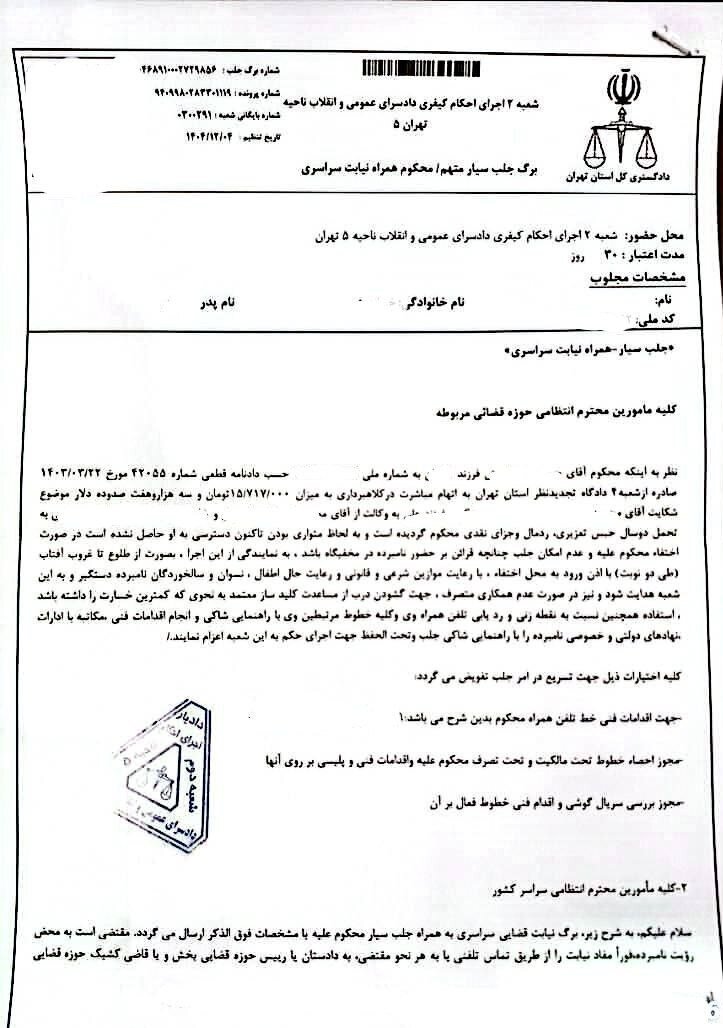 شماره برگ جلب : ۱۴۶۸۹۱۰۰۰۲۷۲۹۸۵۶
شماره پرونده : ۹۴۰۹۹۸۰۲۸۳۳۰۱۱۱۹
شماره بایگانی شعبه : ۰۳۰۰۲۹۱
تاریخ تنظیم : ۱۴۰۴/۱۲/۰۴
شعبه ۲ اجرای احکام کیفری دادسرای عمومی و انقلاب ناحیه
تهران ۵
برگ جلب سیار متهم/ محکوم همراه نیابت سراسری
دادگستری کل استان تهران
محل حضور: شعبه ۲ اجرای احکام کیفری دادسرای عمومی و انقلاب ناحیه ۵ تهران
مدت اعتبار : ۳۰ روز
مشخصات مجلوب
نام: نام خانوادگی: نام پدر
کد ملی:
*جلب سیار-همراه نیابت سراسری*
کلیه مامورین محترم انتظامی حوزه قضائی مربوطه
نظر به اینکه محکوم آقای فرزند به شماره ملی حسب دادنامه قطعی شماره ۴۲۰۵۵ مورخ ۱۴۰۳/۰۳/۲۲
صادره ازشعبه۴ دادگاه تجدیدنظر استان تهران به اتهام مباشرت درکلاهبرداری به میزان ۱۵/۷۱۷/۰۰۰تومان و سه هزاروهفت صدوده دلار موضوع
شکایت آقای به وکالت از آقای و به
تحمل دوسال حبس تعزیری، ردمال وجزای نقدی محکوم گردیده است و به لحاظ متواری بودن تاکنون دسترسی به او حاصل نشده است در صورت
اختفاء محکوم علیه و عدم امکان جلب چنانچه قرائن بر حضور نامبرده در مخفیگاه باشد ، به نمایندگی از این اجرا ، بصورت از طلوع تا غروب آفتاب
(طی دو نوبت) با اذن ورود به محل اختفاء ، با رعایت موازین شرعی و قانونی و رعایت حال اطفال ، نسوان و سالخوردگان نامبرده دستگیر و به این
شعبه هدایت شود و نیز در صورت عدم همکاری متصرف ، جهت گشودن درب از مساعدت کلید ساز معتمد به نحوی که کمترین خسارت را داشته باشد
، استفاده همچنین نسبت به نقطه زنی و رد یابی تلفن همراه وی وکلیه خطوط مرتبطین وی با راهنمایی شاکی و انجام اقدامات فنی ،مکاتبه با ادارات
،نهادهای دولتی و خصوصی نامبرده را با راهنمایی شاکی جلب وتحت الحفظ جهت اجرای حکم به این شعبه اعزام نمایند./
کلیه اختیارات ذیل جهت تسریع در امر جلب تفویض می گردد:
-جهت اقدامات فنی خط تلفن همراه محکوم بدین شرح می باشد:۱
-مجوز احصاء خطوط تحت مالکیت و تحت تصرف محکوم علیه واقدامات فنی و پلیسی بر روی آنها
-مجوز بررسی سریال گوشی و اقدام فنی خطوط فعال بر آن
دادیار
اجرای احکام
شعبه دوم
دادسرای عمومی و
۲-کلیه مأمورین محترم انتظامی سراسر کشور
سلام علیکم، به شرح زیر، برگ نیابت قضایی سراسری به همراه جلب سیار محکوم علیه با مشخصات فوق الذکر ارسال می گردد. مقتضی است به محض
رؤیت نامبرده،فوراً مفاد نیابت را از طریق تماس تلفنی یا به هر نحو مقتضی، به دادستان یا رییس حوزه قضایی بخش و یا قاضی کشیک حوزه قضایی